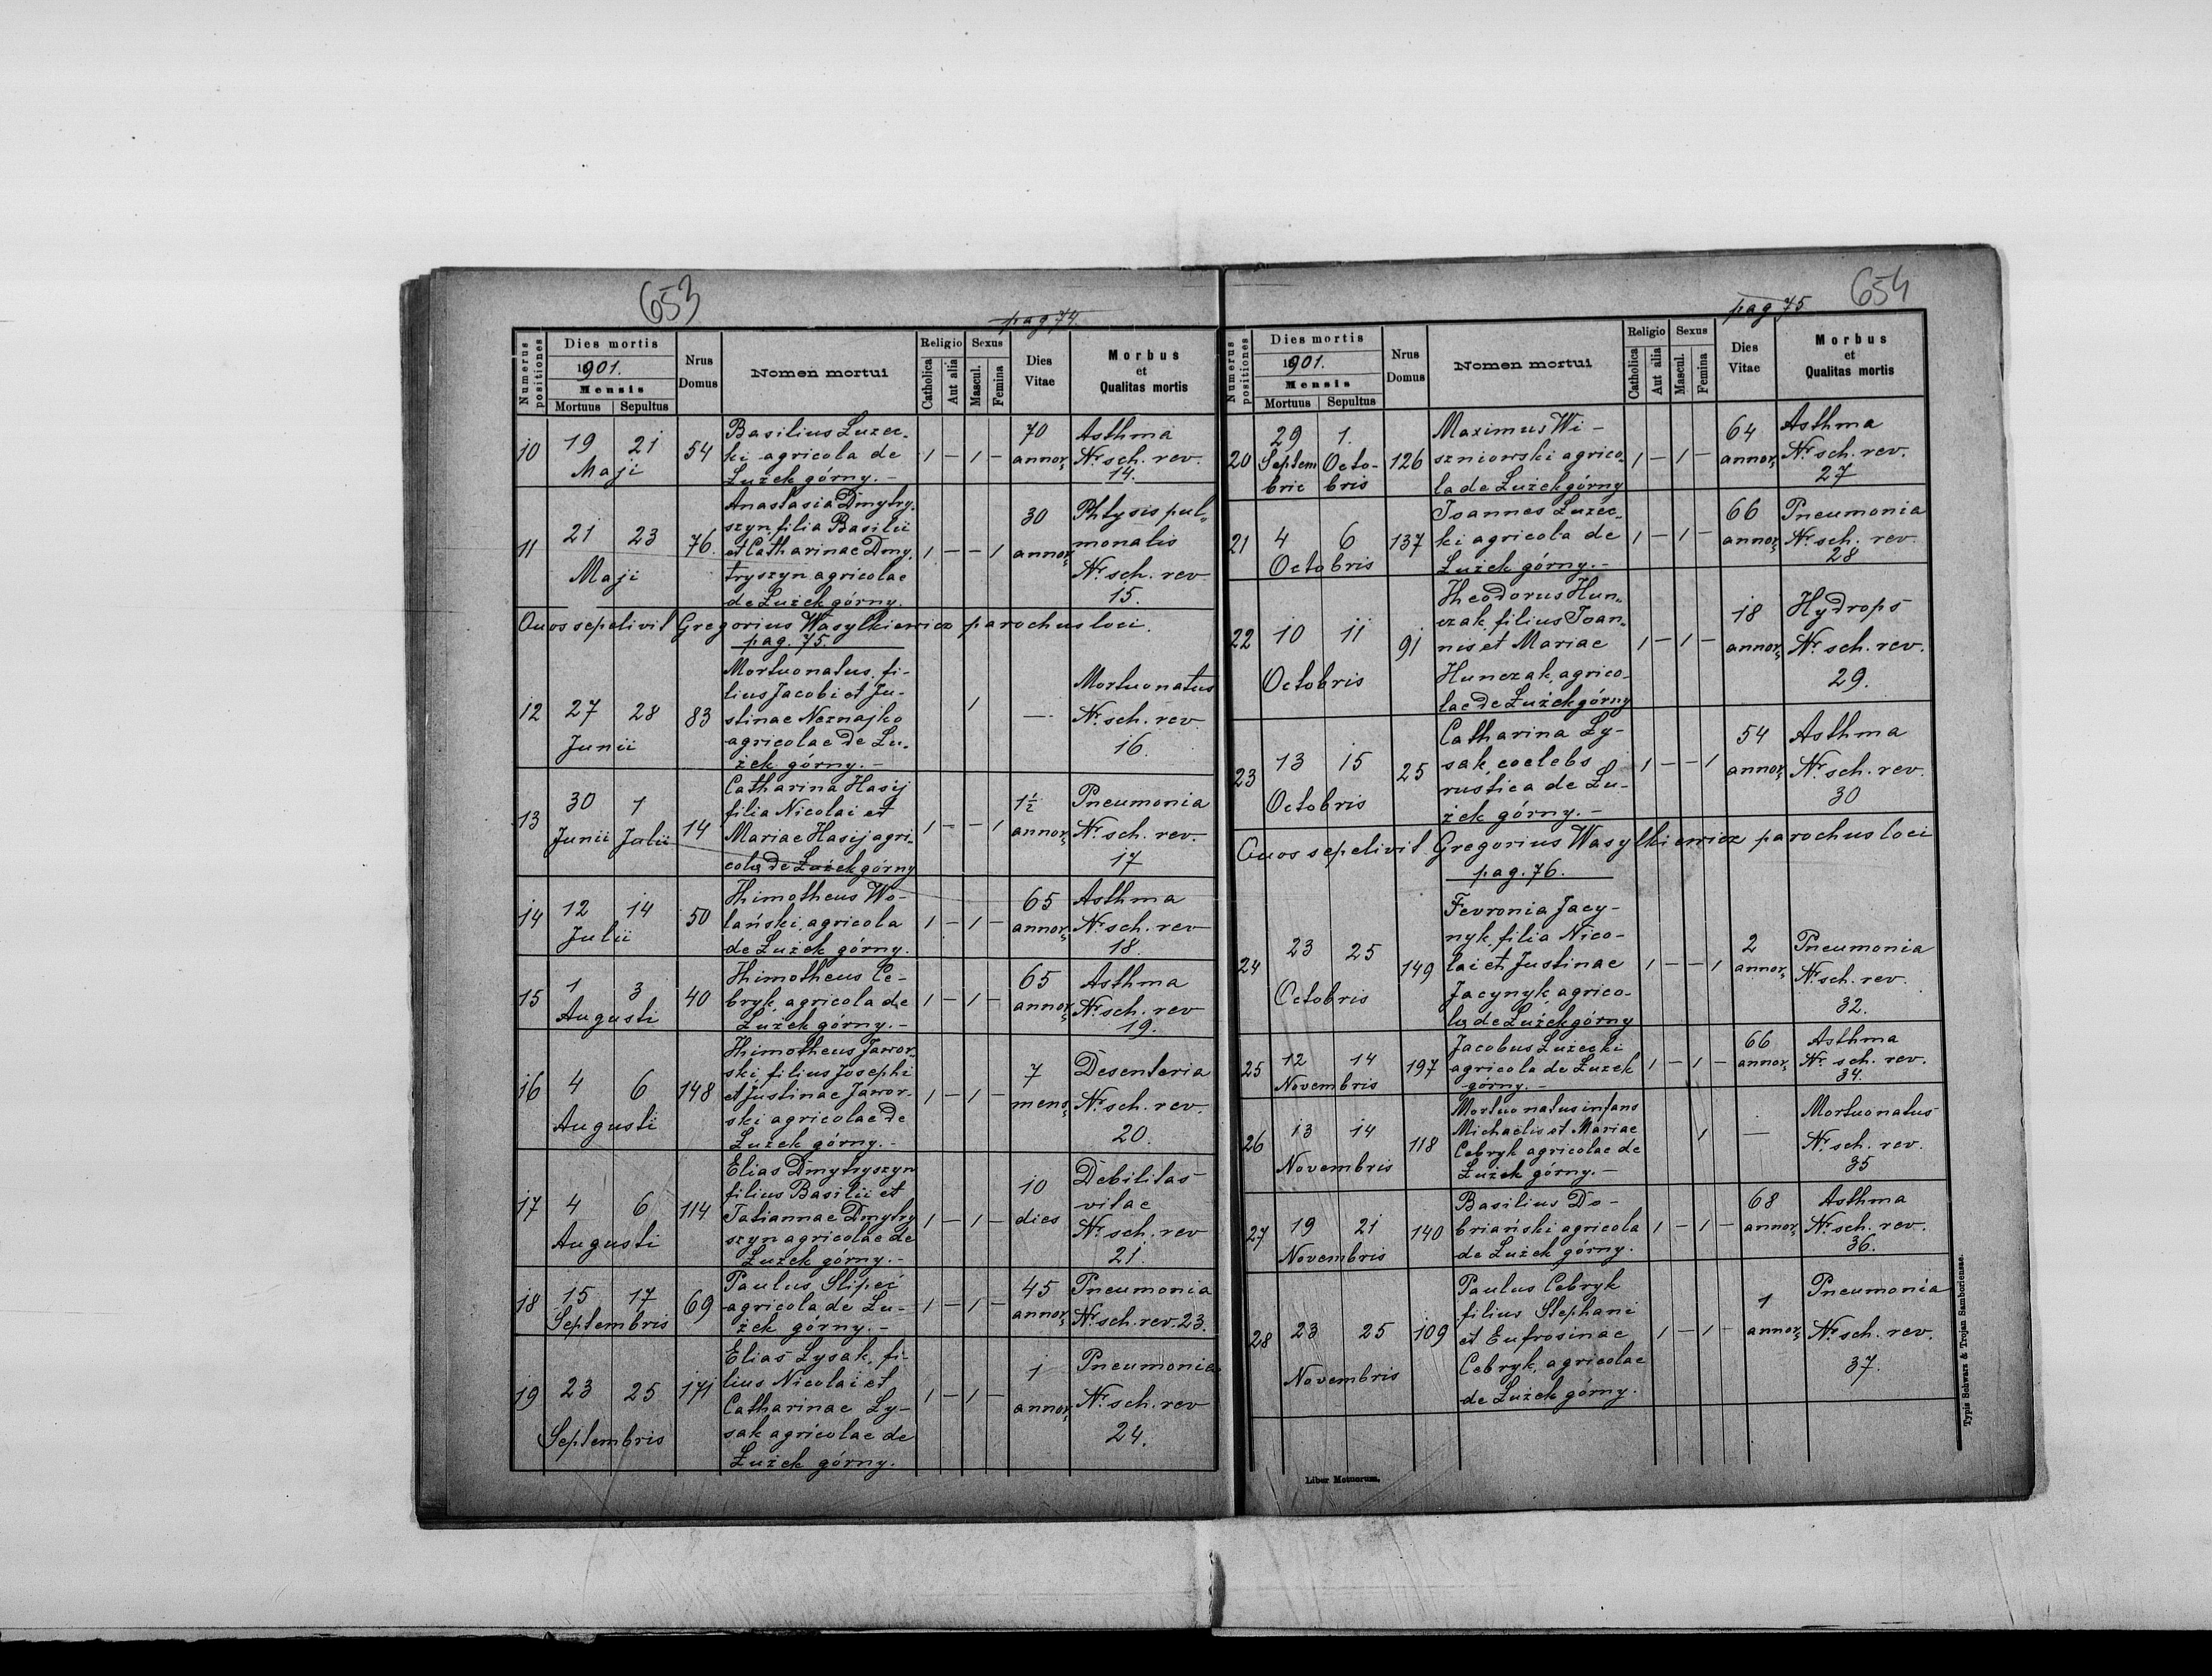 653
pag 74.
Numerus positiones
Dies mortis
1901.
Mensis
Mortuus Sepultus
Nrus Domus
Nomen mortui
Religio Sexus
Catholica Aut alia Mascul. Femina
Dies Vitae
Morbus et Qualitas mortis
10 19 21 Maji 54
Basilius Łużec-
ki agricola de
Łużek górny. –
1 – 1 – 70 annor.
Asthma
Nr. sch. rev.
14.
11 21 23 Maji 76.
Anastasia Dmytry-
szyn, filia Basilii
et Catharinae Dmy-
tryszyn agricolae
de Łużek górny.
1 – – 1 30 annor.
Phtysis pul-
monalis
Nr. sch. rev.
15.
Quos sepelivit Gregorius Wasylkiewicz parochus loci.
pag. 75.
12 27 28 Junii 83
Mortuonatus, fi-
lius Jacobi et Ju-
stinae Neznajko
agricolae de Łu-
żek górny. –
1 —
Mortuonatus
Nr. sch. rev
16.
13 30 1 Junii Julii 14
Catharina Hasij
filia Nicolai et
Mariae Hasij agri-
colae de Łużek górny
1 – – 1 1½ annor.
Pneumonia
Nr. sch. rev.
17
14 12 14 Julii 50
Thimotheus Wo-
lański, agricola
de Łużek górny.
1 – 1 – 65 annor.
Asthma
Nr. sch. rev
18.
15 1 3 Augusti 40
Thimotheus Ce-
bryk, agricola de
Łużek górny. –
1 – 1 – 65 annor.
Asthma
Nr. sch. rev
19.
16 4 6 Augusti 148
Thimotheus Jawor-
ski, filius Josephi
et Justinae Jawor-
ski agricolae de
Łużek górny. –
1 – 1 – 7 mens.
Desenteria
Nr. sch. rev.
20.
17 4 6 Augusti 114
Elias Dmytryszyn
filius Basilii et
Tatiannae Dmytry
szyn agricolae de
Łużek górny. –
1 – 1 – 10 dies
Debilitas
vitae
Nr. sch. rev
21.
18 15 17 Septembris 69
Paulus Slipeć
agricola de Łu-
żek górny. –
1 – 1 – 45 annor.
Pneumonia
Nr. sch. rev. 23.
19 23 25 Septembris 171
Elias Łysak, fi-
lius Nicolai et
Catharinae Ły-
sak agricolae de
Łużek górny.
1 – 1 – 1 annor.
Pneumonia
Nr. sch. rev
24.
654
pag 75.
Numerus positiones
Dies mortis
1901.
Mensis
Mortuus Sepultus
Nrus Domus
Nomen mortui
Religio Sexus
Catholica Aut alia Mascul. Femina
Dies Vitae
Morbus et Qualitas mortis
20 29 1. Septem Octo- 126
brie bris
Maximus Wi-
szniowski agrico-
la de Łużek górny
1 – 1 – 64 annor.
Asthma
Nr. sch. rev.
27
21 4 6 Octobris 137
Joannes Łużec-
ki agricola de
Łużek górny. –
1 – 1 – 66 annor.
Pneumonia
Nr. sch. rev.
28
22 10 11 Octobris 91
Theodorus Hun-
czak, filius Joan-
nis et Mariae
Hunczak, agrico-
lae de Łużek górny
1 – 1 – 18 annor.
Hydrops
Nr. sch. rev.
29.
23 13 15 Octobris 25
Catharina Ły-
sak, coelebs
rustica de Łu-
żek górny. –
1 – – 1 54 annor.
Asthma
Nr. sch. rev.
30
Quos sepelivit Gregorius Wasylkiewicz parochus loci
pag. 76.
24 23 25 Octobris 149
Fevronia Jacy-
nyk, filia Nico-
lai et Justinae
Jacynyk, agrico-
lae de Łużek górny
1 – – 1 2 annor.
Pneumonia
Nr. sch. rev.
32.
25 12 14 Novembris 197
Jacobus Łużecki
agricola de Łużek
górny. –
1 – 1 – 66 annor.
Asthma
Nr. sch. rev.
34.
26 13 14 Novembris 118
Mortuonatus infans
Michaelis et Mariae
Cebryk agricolae de
Łużek górny. –
1 —
Mortuonatus
Nr. sch. rev.
35
27 19 21 Novembris 140
Basilius Do-
briański agricola
de Łużek górny.
1 – 1 – 68 annor.
Asthma
Nr. sch. rev.
36.
28 23 25 Novembris 109
Paulus Cebryk
filius Stephani
et Eufrosinae
Cebryk, agricolae
de Łużek górny.
1 – 1 – 1 annor.
Pneumonia
Nr. sch. rev.
37.
Liber Motuorum.
Typis Schwarz & Trojan Samboriensae.